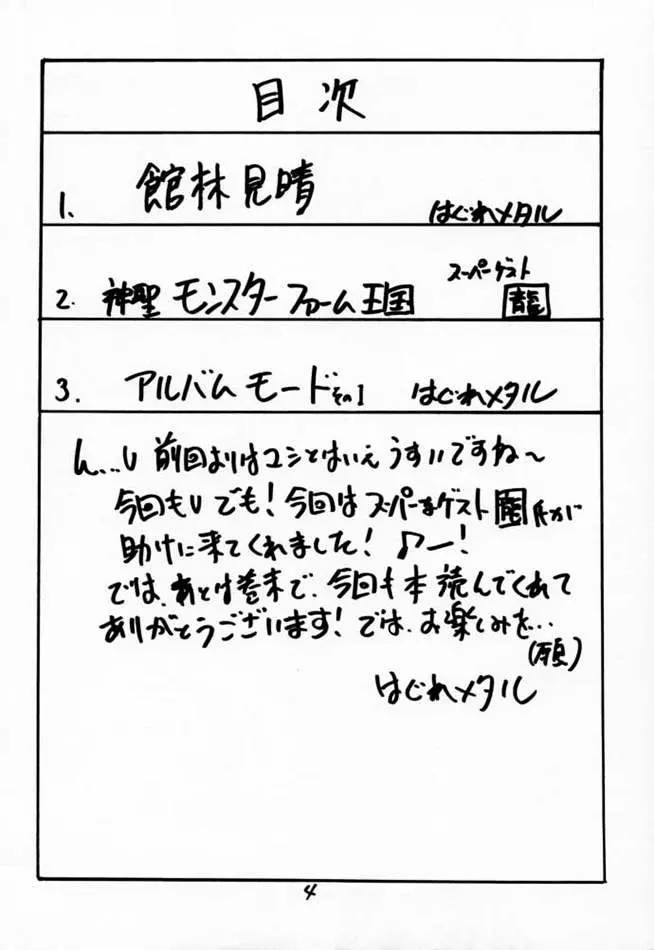 目次
1. 館林見晴 はぐれメタル
2. 神聖モンスターファーム王国 スーパーゲスト 龍
3. アルバムモードその1 はぐれメタル
ん…U 前回よりはマシとはいえうすいですね〜
今回もU でも！今回はスーパーなゲスト 氏が
助けに来てくれました！♪ー！
では、あとは巻末で、今回も本読んでくれて
ありがとうございます！では、お楽しみを…
(願)
はぐれメタル
4